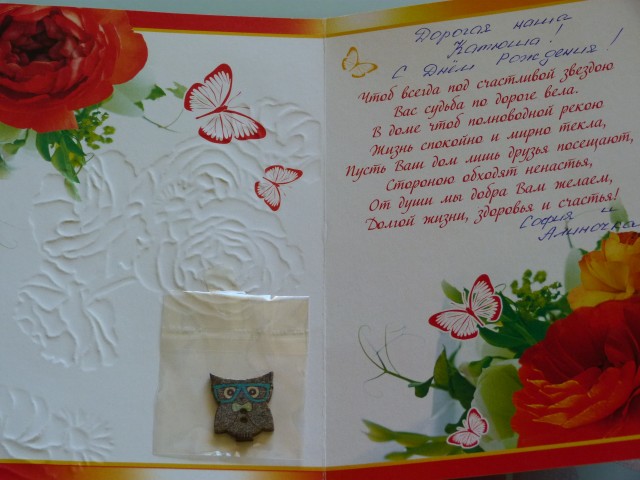 Дорогая наша
Катюша!
С Днём Рождения!
Чтоб всегда под счастливой звездою
Вас судьба по дороге вела.
В доме чтоб полноводной рекою
Жизнь спокойно и мирно текла,
Пусть Ваш дом лишь друзья посещают,
Стороною обходят ненастья,
От души мы добра Вам желаем,
Долгой жизни, здоровья и счастья!
София и
Алиночка